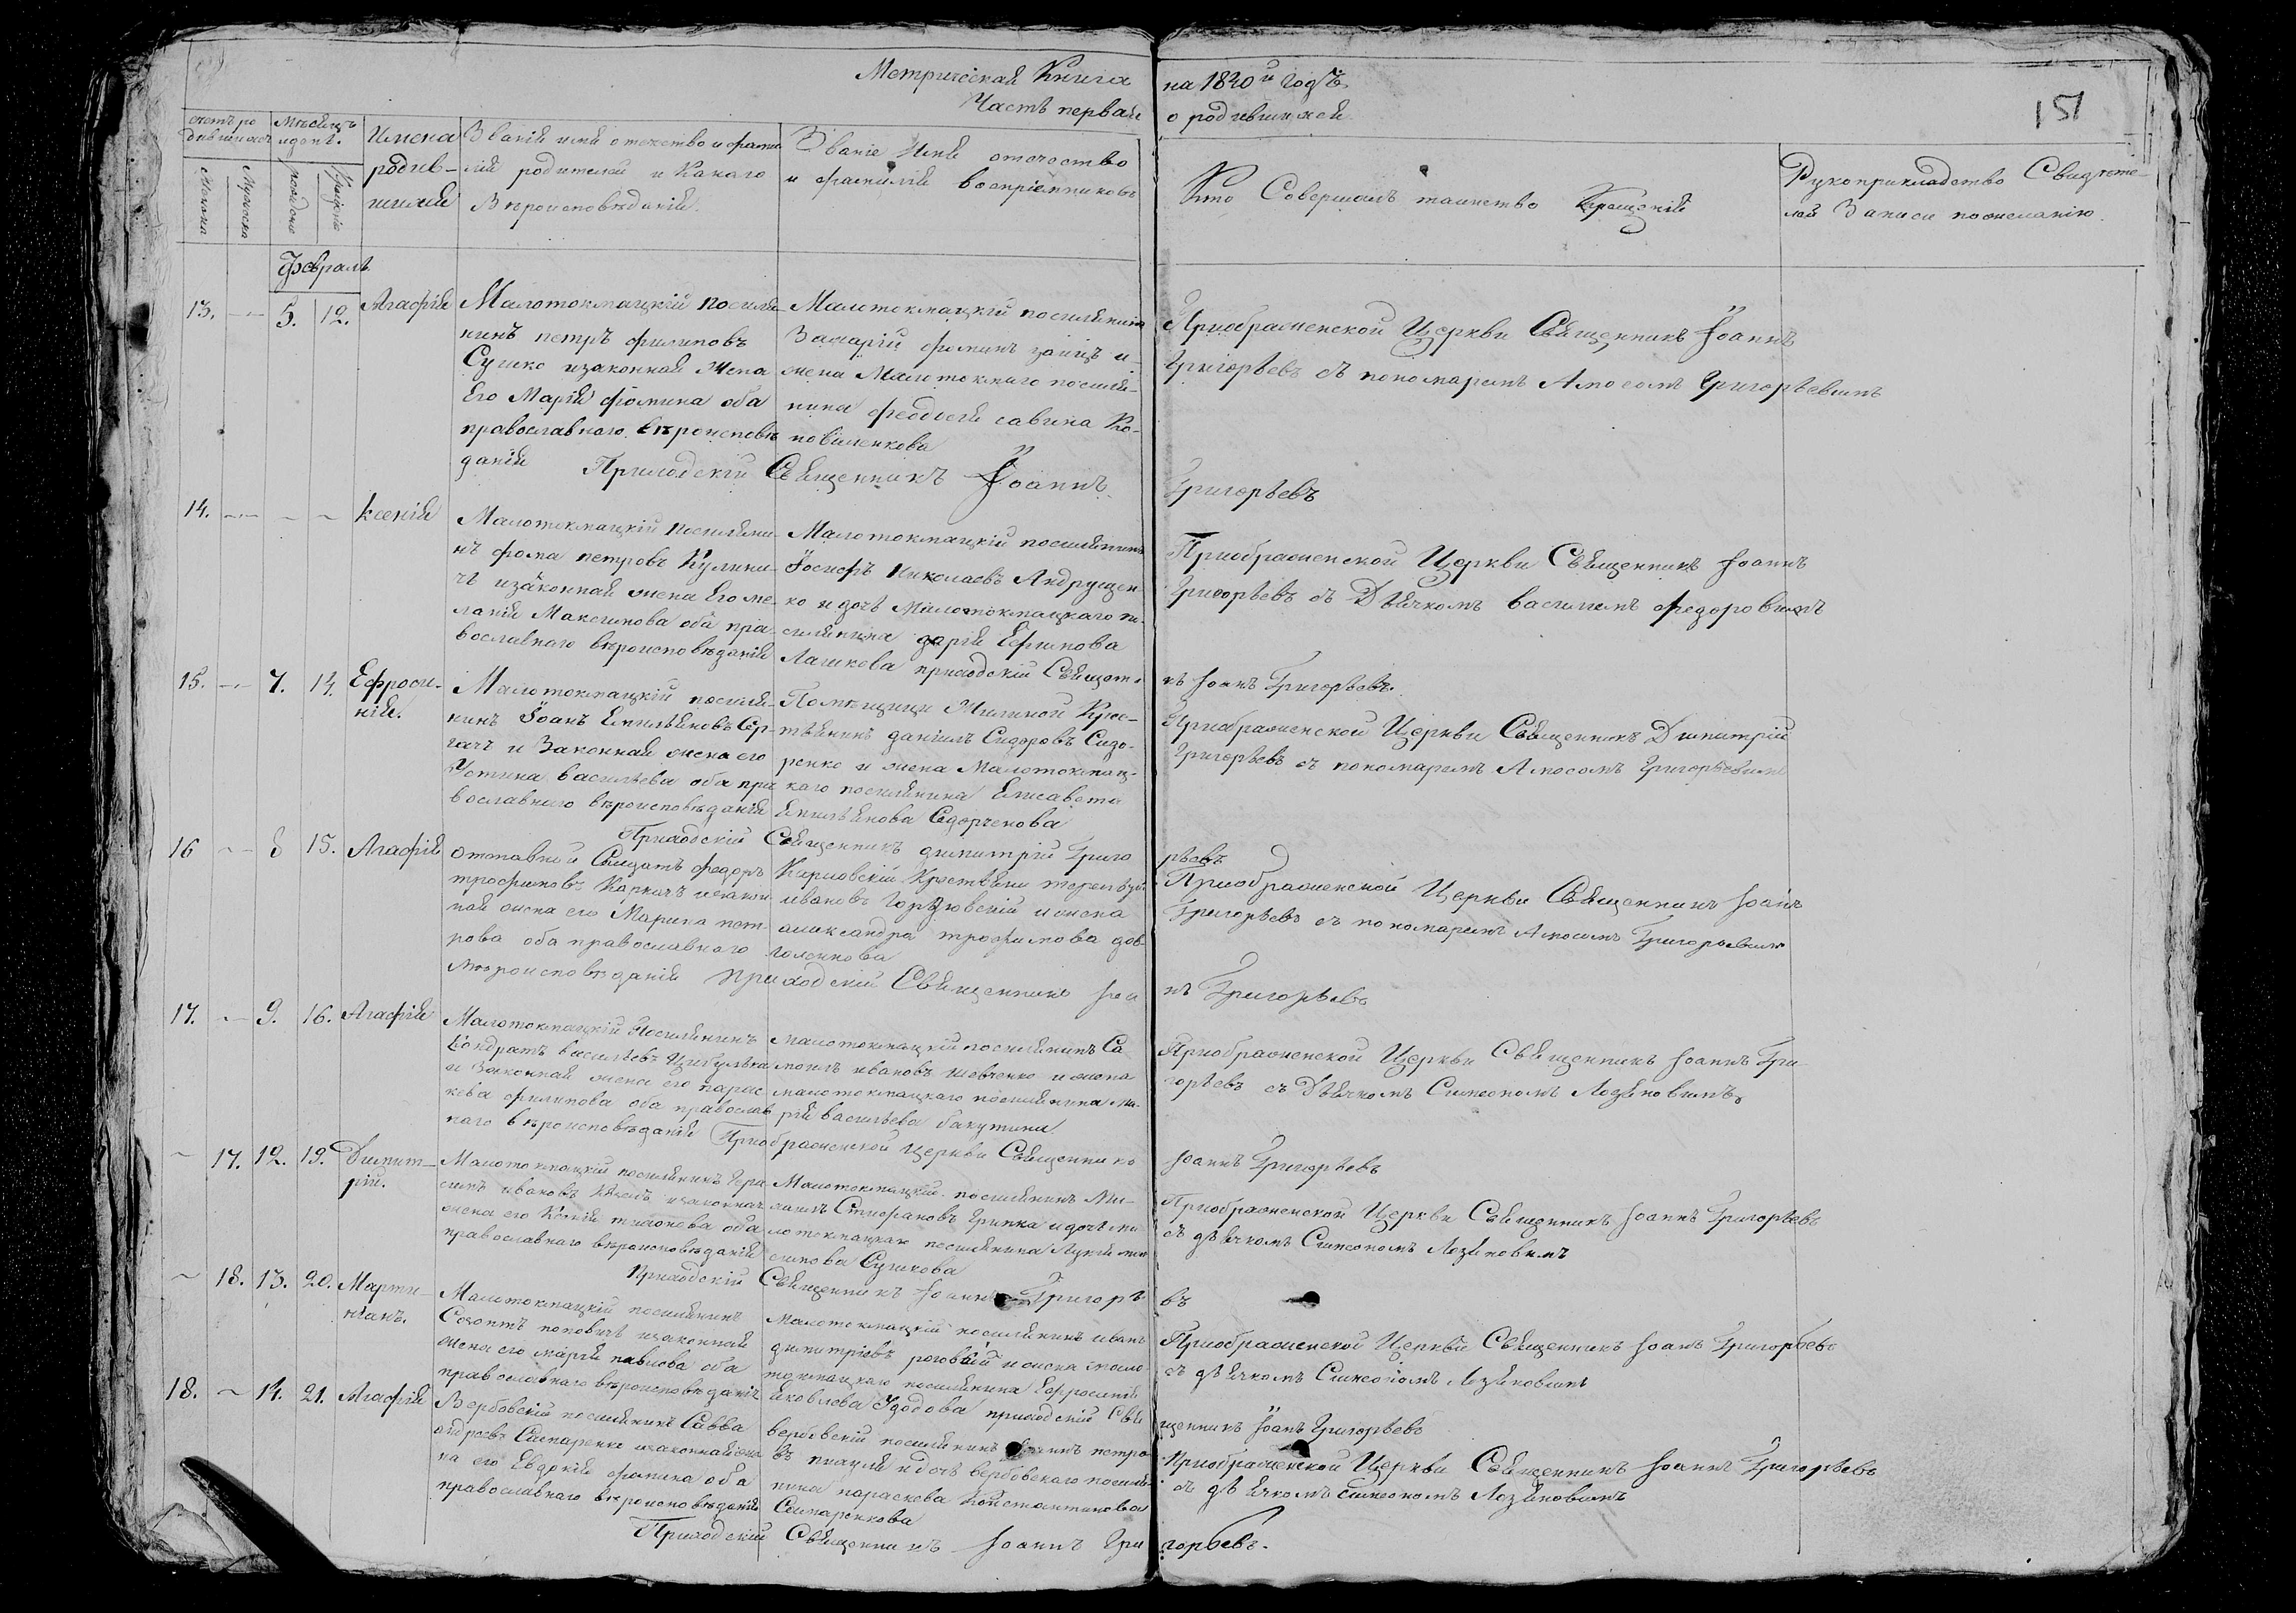 Метрическая Книга на 1840й годъ
Часть первая о родившихся
151
счетъ ро- дившихся
Мѣсяцъ и день.
Имена родив- шихся
Званія имя отечество и фами- лія родителей и Какого Вѣроисповѣданія.
Званіе Имя отечество и фамилія воспріемниковъ
Кто Совершалъ таинство Крещенія
Рукоприкладство Свидѣте- лей Записи по желанію.
Женска
Мужеска
рожденіе
крещеніе
Февраль
13. 5. 12. Агафія
Малотокмацкій поселя-
нинъ петръ филиповъ
Сушко и законная жена
Его Марія фомина оба
православнаго вѣроисповѣ
данія
Малотокмацкій поселянинъ
Захарій фоминъ заицъ и
жена Малотокмцаго поселя-
нина феодосія савина Ко-
Преображенской Церкви Священникъ Іоаннъ
Григорьевъ съ пономаремъ Амосомъ Григорьевымъ
Приходскій Священникъ Іоаннъ Григорьевъ
14. Ксенія
Малотокмацкій поселяни-
нъ фома петровъ Кулини-
чъ и законная жена Его ме-
ланія Максимова оба пра-
вославнаго вѣроисповѣданія
Малотокмацкій поселянинъ
Іосифъ Николаевъ Андрущен-
ко и дочь Малотокмацкаго по-
селянина дарія Ефимова
Лашкова приходскій Священ-
Преображенской Церкви Священникъ Іоаннъ
Григорьевъ съ Дьячкомъ василиемъ федоровимъ
къ Іоанъ Григорьевъ.
15. 7. 14. Ефроси- нія.
Малотокмацкій поселя-
нинъ Іоанъ Емильяновъ Сер-
гачъ и Законная жена его
Устина васильева оба пра
вославнаго вѣроисповѣданія
Помѣщици Милиной Крес-
тьянинъ даніилъ Сидоровъ Сидо-
ренко и жена Малотокмац-
каго поселянина Елисавета
Емильянова Сидорченкова
Преображенской Церкви Священникъ Димитрій
Григорьевъ съ пономаремъ Амосомъ Григорьевимъ
Приходскій Священникъ димитрій Григо рьевъ
16 8 15. Агафія
отставной Солдатъ федоръ
трофимовъ Каркачъ и закон
ная жена его Марина пет-
рова оба православнаго
вѣроисповѣданія
ивановъ и жена
александра трофимова дов-
голенкова
Преображенской Церкви Священникъ Іоаннъ
Григорьевъ съ пономаремъ Амосомъ Григорьевымъ
приходскій Священникъ Іоа нъ Григорьевъ
17. 9. 16. Агафія
Малотокмацкій Поселянинъ
Кондратъ васильевъ Цибулька
и Законная жена его парас
кева филипова оба православ
наго вѣроисповѣданія
малотокмацкій поселянинъ Са
моилъ ивановъ Шевченко и жена
малотокмацкаго поселянина ма-
рія васильева бакутина
Преображенской Церкви Священникъ Іоаннъ Гри-
горьевъ съ Дьячкомъ Симеономъ Лозяновимъ
Преображенской Церкви Священникъ Іоаннъ Григорьевъ
17. 12. 19. Димит- рій.
Малотокмацкій поселянинъ Гера
симъ ивановъ и законная
жена его Ксенія тихонова оба
православнаго вѣроисповѣданія
Малотокмацкій поселянинъ Ми-
хаилъ Стифановъ Гринка и дочь ма-
лотокмацкаго поселянина
симова Сушкова
Преображенской Церкви Священникъ Іоаннъ Григорьевъ
съ дьячкомъ Симеономъ Лозяновимъ
Приходскій Священникъ Іоаннъ Григорь въ
18. 13. 20. Марти- ніанъ.
Малотокмацкій поселянинъ
Созонтъ поповичъ и законная
жена его марія павлова оба
православнаго вѣроисповѣданія
малотокмацкій поселянинъ иванъ
димитріевъ роговый и жена мало
токмацкаго поселянина Ефросинія
яковлева Удодова приходскій Свя
Преображенской Церкви Священникъ Іоанъ Григорьевъ
съ дьячкомъ Симеономъ Лозяновимъ
щенникъ Іоанъ Григорьевъ
18. 14. 21. Агафія
Вербовскій поселянинъ Савва
андреевъ Слипаренко и законная же
на его Евдокія фомина оба
православнаго вѣроисповѣданія
вербовскій поселянинъ Іоаннъ петро
въ и дочь вербовскаго поселя-
нина параскева Константинова
Слипаренкова
Преображенской Церкви Священникъ Іоаннъ Григорьевъ
съ дьячкомъ Симеономъ Лозяновимъ
Приходскій Священникъ Іоаннъ Гри горьевъ.